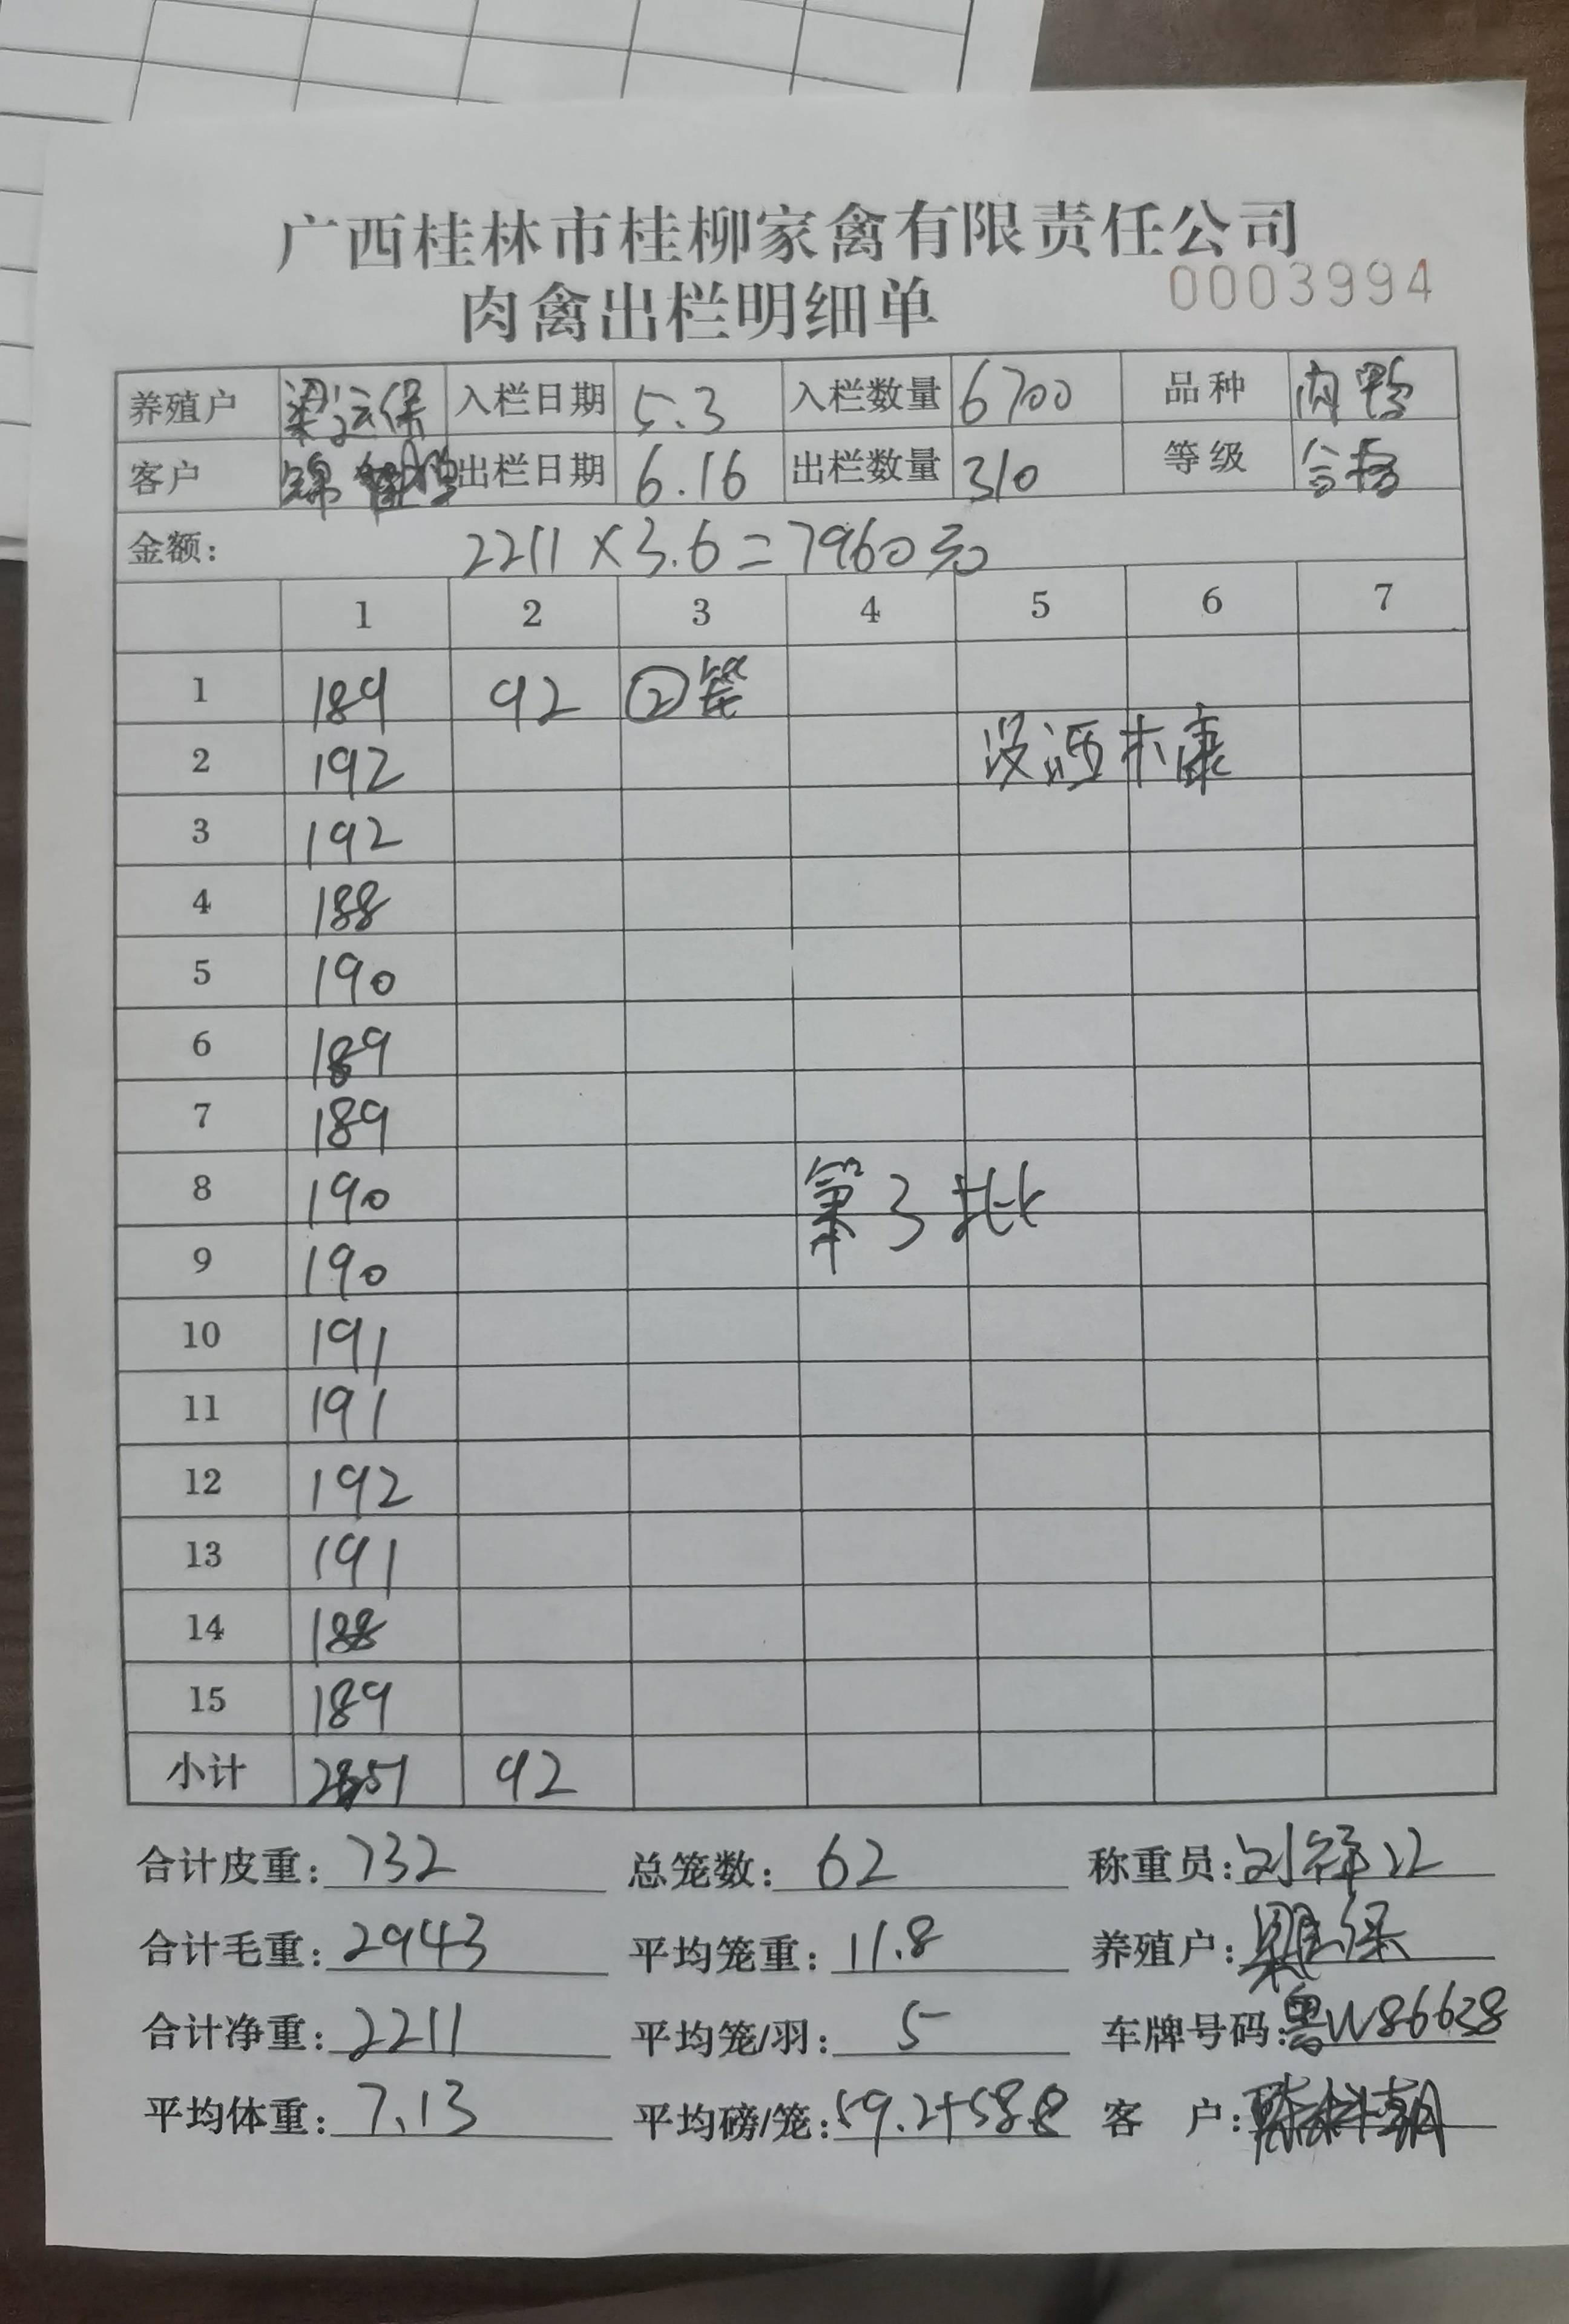 广西桂林市桂柳家禽有限责任公司
肉禽出栏明细单 0003994
养殖户 梁运保 入栏日期 5.3 入栏数量 6700 品种 肉鸭
客户 出栏日期 6.16 出栏数量 310 等级 合格
金额: 2211×3.6=7960元
1 2 3 4 5 6 7
1 189 92 ②笼
2 192 没洒木康
3 192
4 188
5 190
6 189
7 189
8 190 第3批
9 190
10 191
11 191
12 192
13 191
14 188
15 189
小计 2851 92
合计皮重: 732 总笼数: 62 称重员:
合计毛重: 2943 平均笼重: 11.8 养殖户: 梁运保
合计净重: 2211 平均笼/羽: 5 车牌号码: 粤W86638
平均体重: 7.13 平均磅/笼: 59.2+58.8 客 户: